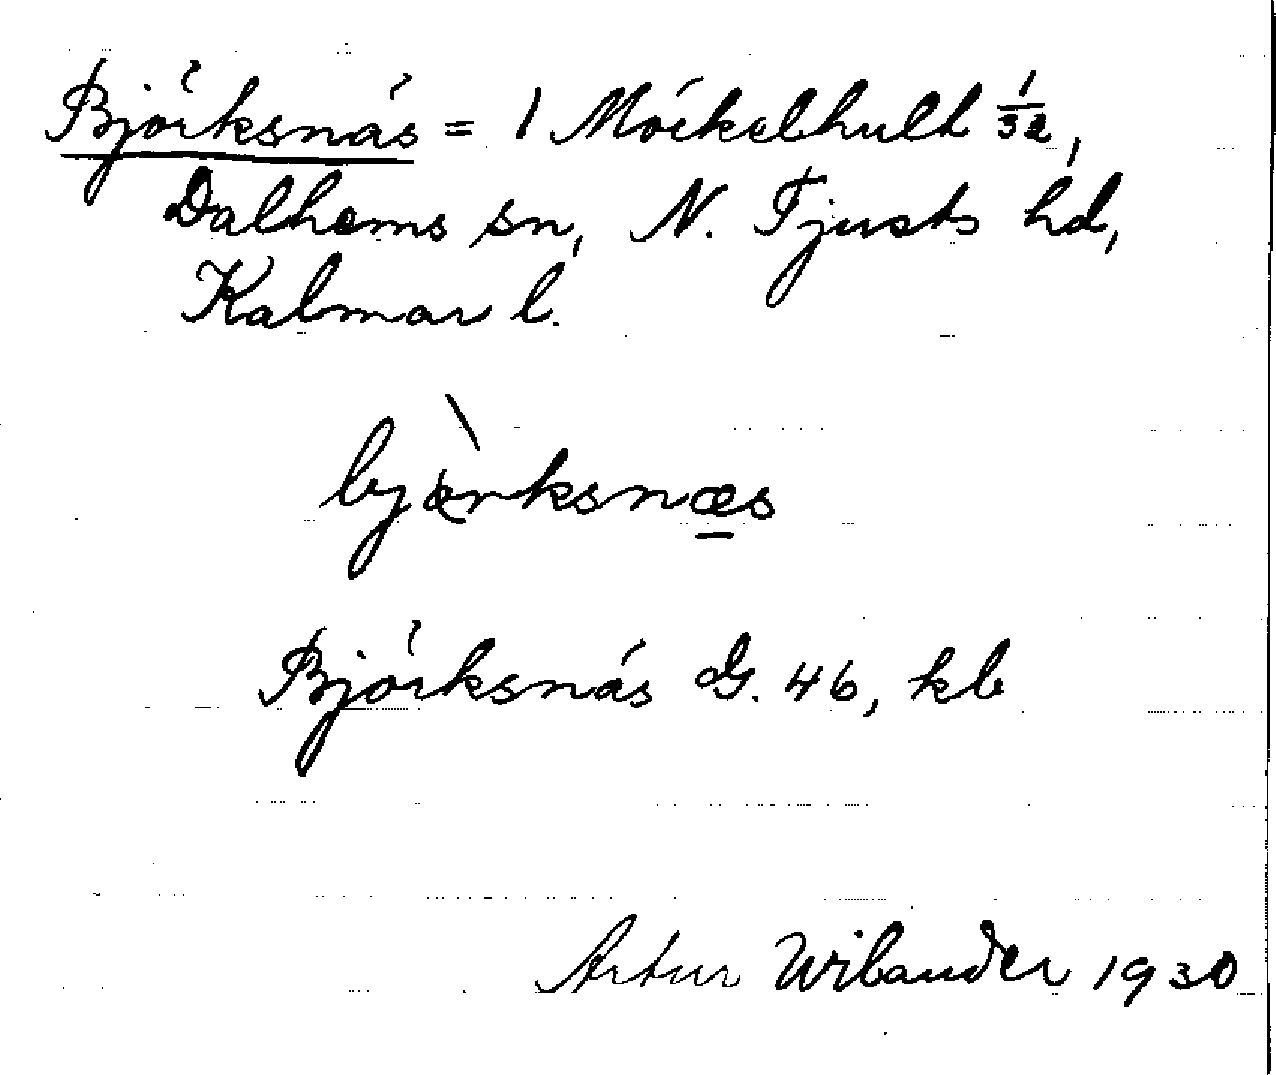 Björksnäs = 1 Möckelhult 1/32,
Dalhems sn, N. Tjusts hd,
Kalmar l.
bjɵ̀rksnæs
Björksnäs G. 46, kb
Artur Wilander 1930